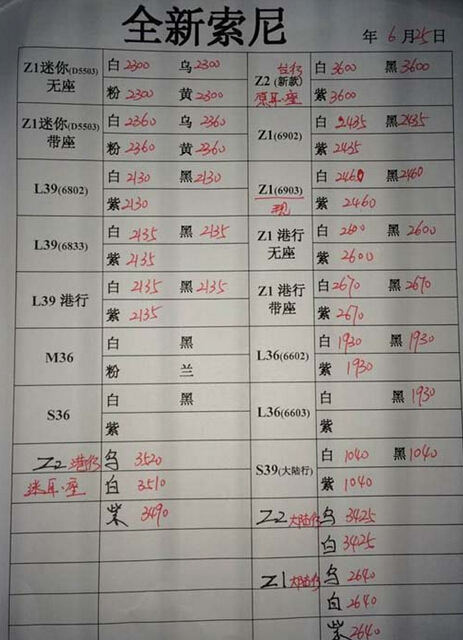 全新索尼
年 6 月 25 日
Z1迷你(D5503) 无座
白 2300 乌 2300
粉 2300 黄 2300
Z1迷你(D5503) 带座
白 2360 乌 2360
粉 2360 黄 2360
L39(6802)
白 2130 黑 2130
紫 2130
L39(6833)
白 2135 黑 2135
紫 2135
L39 港行
白 2135 黑 2135
紫 2135
M36
白 黑
粉 兰
S36
白 黑
紫
Z2 港行 乌 3520
座 白 3510
紫 3490
Z2 (新款)
白 3600 黑 3600
座 紫 3600
Z1(6902)
白 2435 黑 2435
紫 2435
Z1(6903)
白 2460 黑 2460
现 紫 2460
Z1 港行 无座
白 2600 黑 2600
紫 2600
Z1 港行 带座
白 2670 黑 2670
紫 2670
L36(6602)
白 1930 黑 1930
紫 1930
L36(6603)
白 黑 1930
紫
S39(大陆行)
白 1040 黑 1040
紫 1040
Z2 大陆行 乌 3425
白 3425
Z1 大陆行 乌 2640
白 2640
紫 2640